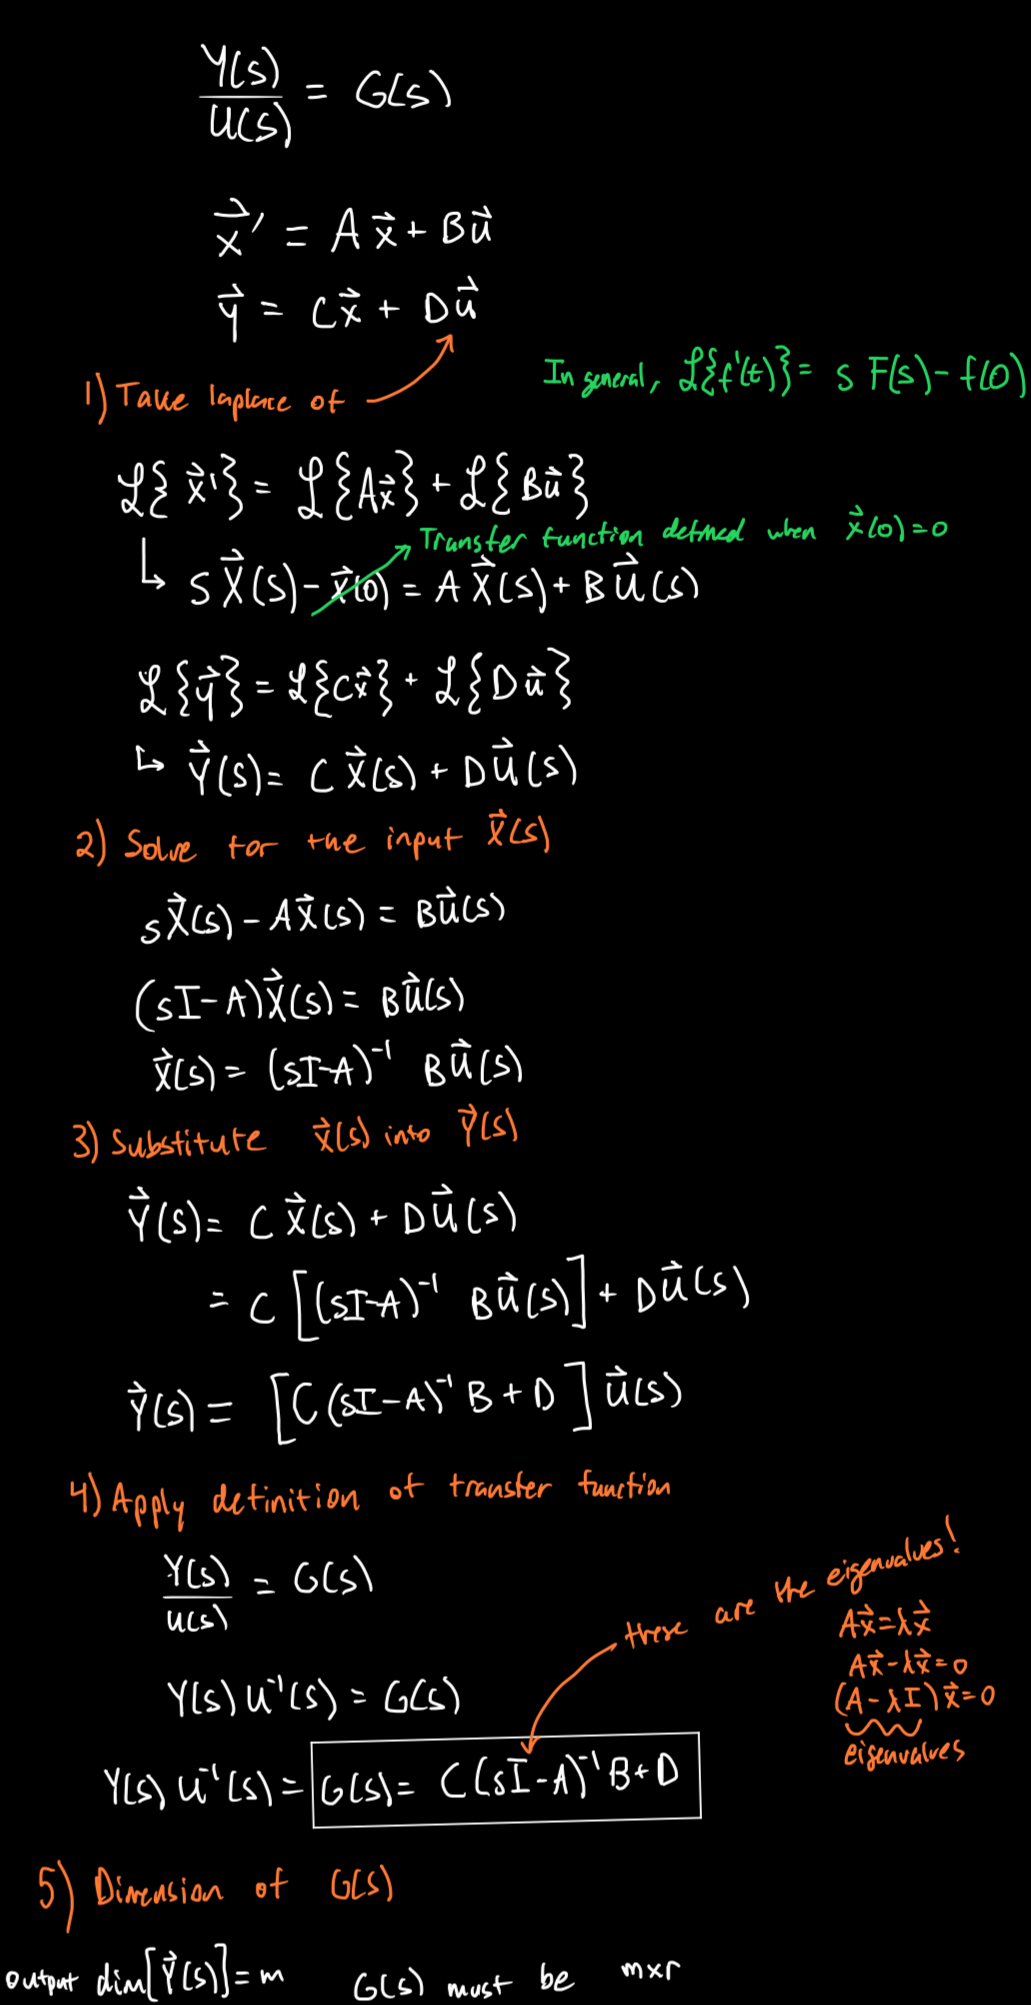 Y(s)/U(s) = G(s)
x⃗' = Ax⃗ + Bu⃗
y⃗ = Cx⃗ + Du⃗
1) Take laplace of
In general, ℒ{f'(t)} = s F(s) - f(0)
ℒ{x⃗'} = ℒ{Ax⃗} + ℒ{Bu⃗}
Transfer function defined when x⃗(0)=0
↳ sX⃗(s) - x⃗(0) = AX⃗(s) + BU⃗(s)
ℒ{y⃗} = ℒ{Cx⃗} + ℒ{Du⃗}
↳ Y⃗(s) = CX⃗(s) + DU⃗(s)
2) Solve for the input X⃗(s)
sX⃗(s) - AX⃗(s) = BU⃗(s)
(sI-A)X⃗(s) = BU⃗(s)
X⃗(s) = (sI-A)⁻¹ BU⃗(s)
3) Substitute X⃗(s) into Y⃗(s)
Y⃗(s) = CX⃗(s) + DU⃗(s)
= C[(sI-A)⁻¹ BU⃗(s)] + DU⃗(s)
Y⃗(s) = [C(sI-A)⁻¹B + D] U⃗(s)
4) Apply definition of transfer function
Y(s)/U(s) = G(s)
these are the eigenvalues!
Ax⃗=λx⃗
Ax⃗-λx⃗=0
(A-λI)x⃗=0
eigenvalues
Y(s)U⁻¹(s) = G(s)
Y(s)U⁻¹(s) = G(s) = C(sI-A)⁻¹B+D
5) Dimension of G(s)
output dim[Y⃗(s)]=m G(s) must be mxr